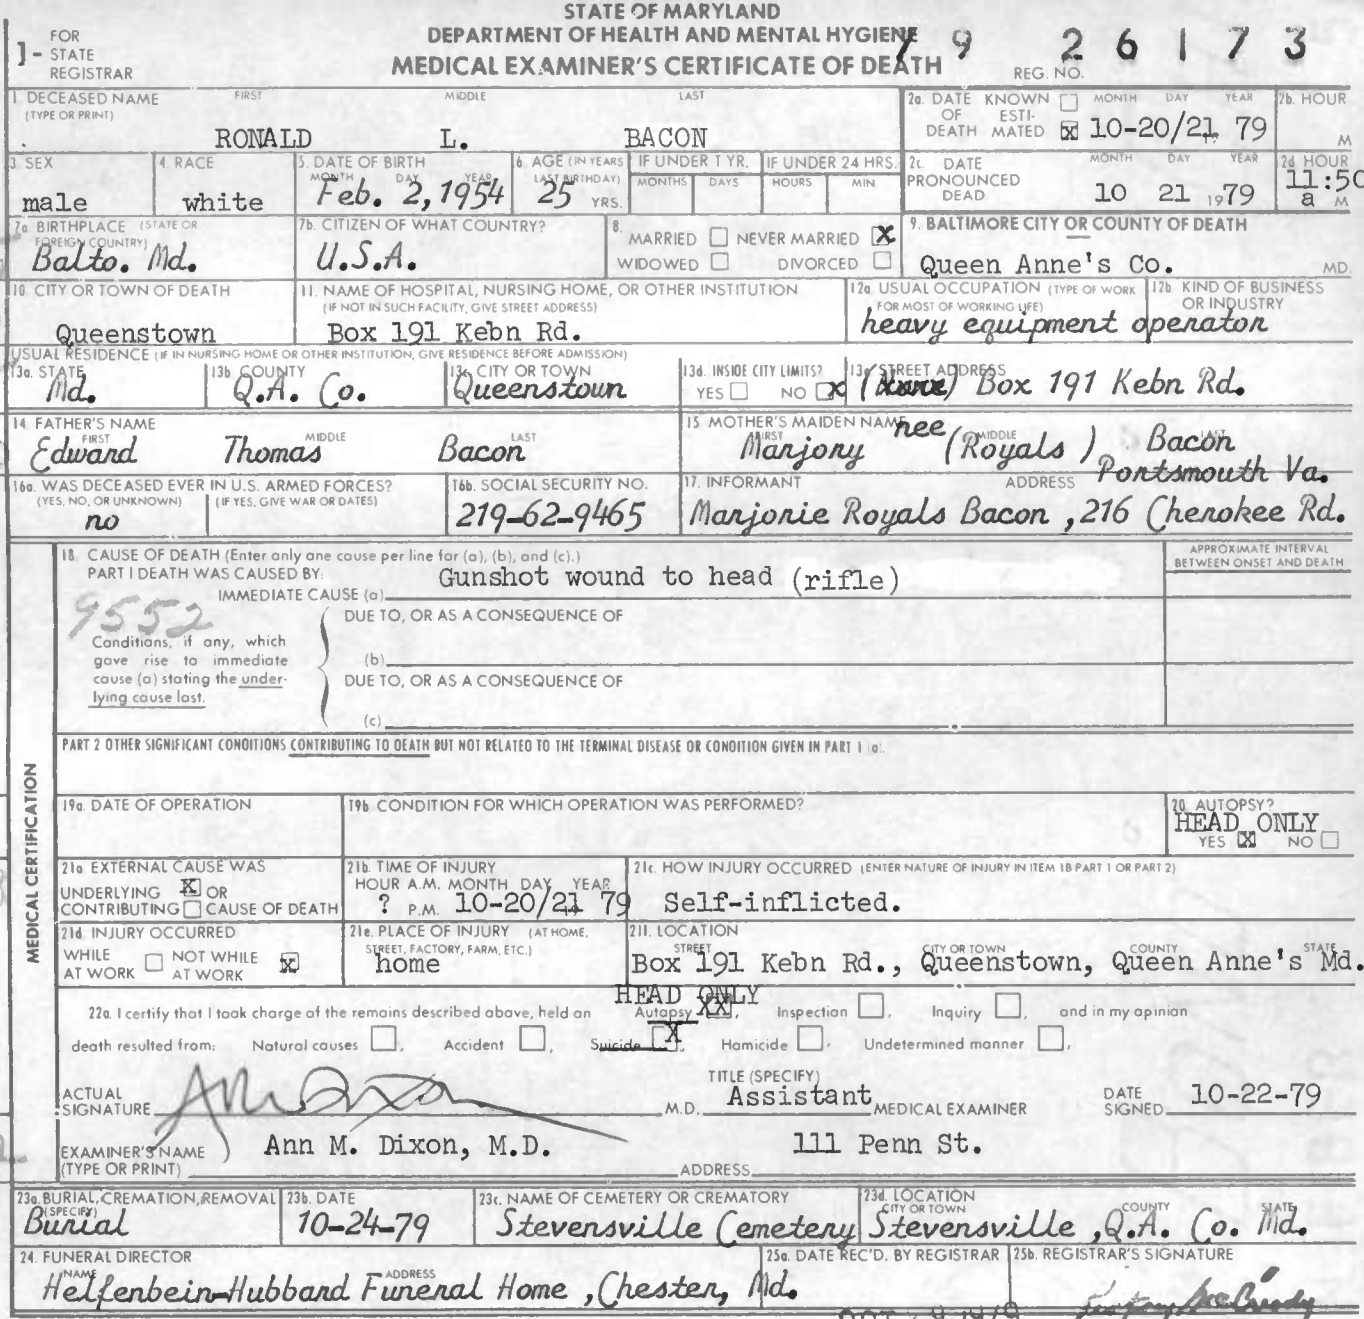 STATE OF MARYLAND
DEPARTMENT OF HEALTH AND MENTAL HYGIENE
MEDICAL EXAMINER'S CERTIFICATE OF DEATH
1- FOR STATE REGISTRAR
REG. NO. 79 26173
1. DECEASED NAME (TYPE OR PRINT) FIRST MIDDLE LAST
RONALD L. BACON
2a. DATE OF DEATH KNOWN ☐ ESTI-MATED ☒ MONTH DAY YEAR 10-20/21 79
2b. HOUR M
3. SEX male
4. RACE white
5. DATE OF BIRTH MONTH DAY YEAR Feb. 2, 1954
6. AGE (IN YEARS LAST BIRTHDAY) 25 YRS.
IF UNDER 1 YR. MONTHS DAYS
IF UNDER 24 HRS. HOURS MIN
2c. DATE PRONOUNCED DEAD MONTH DAY YEAR 10 21 1979
2d HOUR 11:50 a M
7a BIRTHPLACE (STATE OR FOREIGN COUNTRY) Balto. Md.
7b. CITIZEN OF WHAT COUNTRY? U.S.A.
8. MARRIED ☐ NEVER MARRIED ☒
WIDOWED ☐ DIVORCED ☐
9. BALTIMORE CITY OR COUNTY OF DEATH
Queen Anne's Co. MD.
10. CITY OR TOWN OF DEATH Queenstown
11. NAME OF HOSPITAL, NURSING HOME, OR OTHER INSTITUTION
(IF NOT IN SUCH FACILITY, GIVE STREET ADDRESS)
Box 191 Kebn Rd.
12a. USUAL OCCUPATION (TYPE OF WORK FOR MOST OF WORKING LIFE)
12b. KIND OF BUSINESS OR INDUSTRY
heavy equipment operator
USUAL RESIDENCE (IF IN NURSING HOME OR OTHER INSTITUTION, GIVE RESIDENCE BEFORE ADMISSION)
13a. STATE Md.
13b COUNTY Q.A. Co.
13c. CITY OR TOWN Queenstown
13d. INSIDE CITY LIMITS? YES ☐ NO ☒
13e. STREET ADDRESS Box 191 Kebn Rd.
14. FATHER'S NAME FIRST MIDDLE LAST
Edward Thomas Bacon
15. MOTHER'S MAIDEN NAME FIRST MIDDLE LAST
Marjory nee (Royals) Bacon
16a. WAS DECEASED EVER IN U.S. ARMED FORCES?
(YES, NO, OR UNKNOWN) (IF YES, GIVE WAR OR DATES)
no
16b. SOCIAL SECURITY NO.
219-62-9465
17. INFORMANT ADDRESS Portsmouth Va.
Marjorie Royals Bacon, 216 Cherokee Rd.
MEDICAL CERTIFICATION
18. CAUSE OF DEATH (Enter only one cause per line for (a), (b), and (c).)
APPROXIMATE INTERVAL BETWEEN ONSET AND DEATH
PART I DEATH WAS CAUSED BY:
IMMEDIATE CAUSE (a) Gunshot wound to head (rifle)
9552
DUE TO, OR AS A CONSEQUENCE OF
Conditions, if any, which gave rise to immediate cause (a) stating the underlying cause last.
(b)
DUE TO, OR AS A CONSEQUENCE OF
(c)
PART 2 OTHER SIGNIFICANT CONDITIONS CONTRIBUTING TO DEATH BUT NOT RELATED TO THE TERMINAL DISEASE OR CONDITION GIVEN IN PART 1 (a).
19a. DATE OF OPERATION
19b CONDITION FOR WHICH OPERATION WAS PERFORMED?
20. AUTOPSY? HEAD ONLY YES ☒ NO ☐
21a EXTERNAL CAUSE WAS
UNDERLYING ☒ OR
CONTRIBUTING ☐ CAUSE OF DEATH
21b. TIME OF INJURY
HOUR A.M. MONTH DAY YEAR
? P.M. 10-20/21 79
21c. HOW INJURY OCCURRED (ENTER NATURE OF INJURY IN ITEM 18 PART 1 OR PART 2)
Self-inflicted.
21d INJURY OCCURRED
WHILE AT WORK ☐ NOT WHILE AT WORK ☒
21e. PLACE OF INJURY (AT HOME, STREET, FACTORY, FARM, ETC.)
home
21f. LOCATION STREET CITY OR TOWN COUNTY STATE
Box 191 Kebn Rd., Queenstown, Queen Anne's Md.
HEAD ONLY
22a. I certify that I took charge of the remains described above, held an Autopsy ☒, Inspection ☐, Inquiry ☐, and in my opinion
death resulted from: Natural causes ☐, Accident ☐, Suicide ☒, Homicide ☐, Undetermined manner ☐,
ACTUAL SIGNATURE Ann Dixon M.D.
TITLE (SPECIFY) Assistant MEDICAL EXAMINER
DATE SIGNED 10-22-79
EXAMINER'S NAME (TYPE OR PRINT) Ann M. Dixon, M.D.
ADDRESS 111 Penn St.
23a. BURIAL, CREMATION, REMOVAL (SPECIFY) Burial
23b. DATE 10-24-79
23c. NAME OF CEMETERY OR CREMATORY Stevensville Cemetery
23d. LOCATION CITY OR TOWN COUNTY STATE
Stevensville, Q.A. Co. Md.
24. FUNERAL DIRECTOR NAME ADDRESS
Helfenbein-Hubbard Funeral Home, Chester, Md.
25a. DATE REC'D. BY REGISTRAR
25b. REGISTRAR'S SIGNATURE